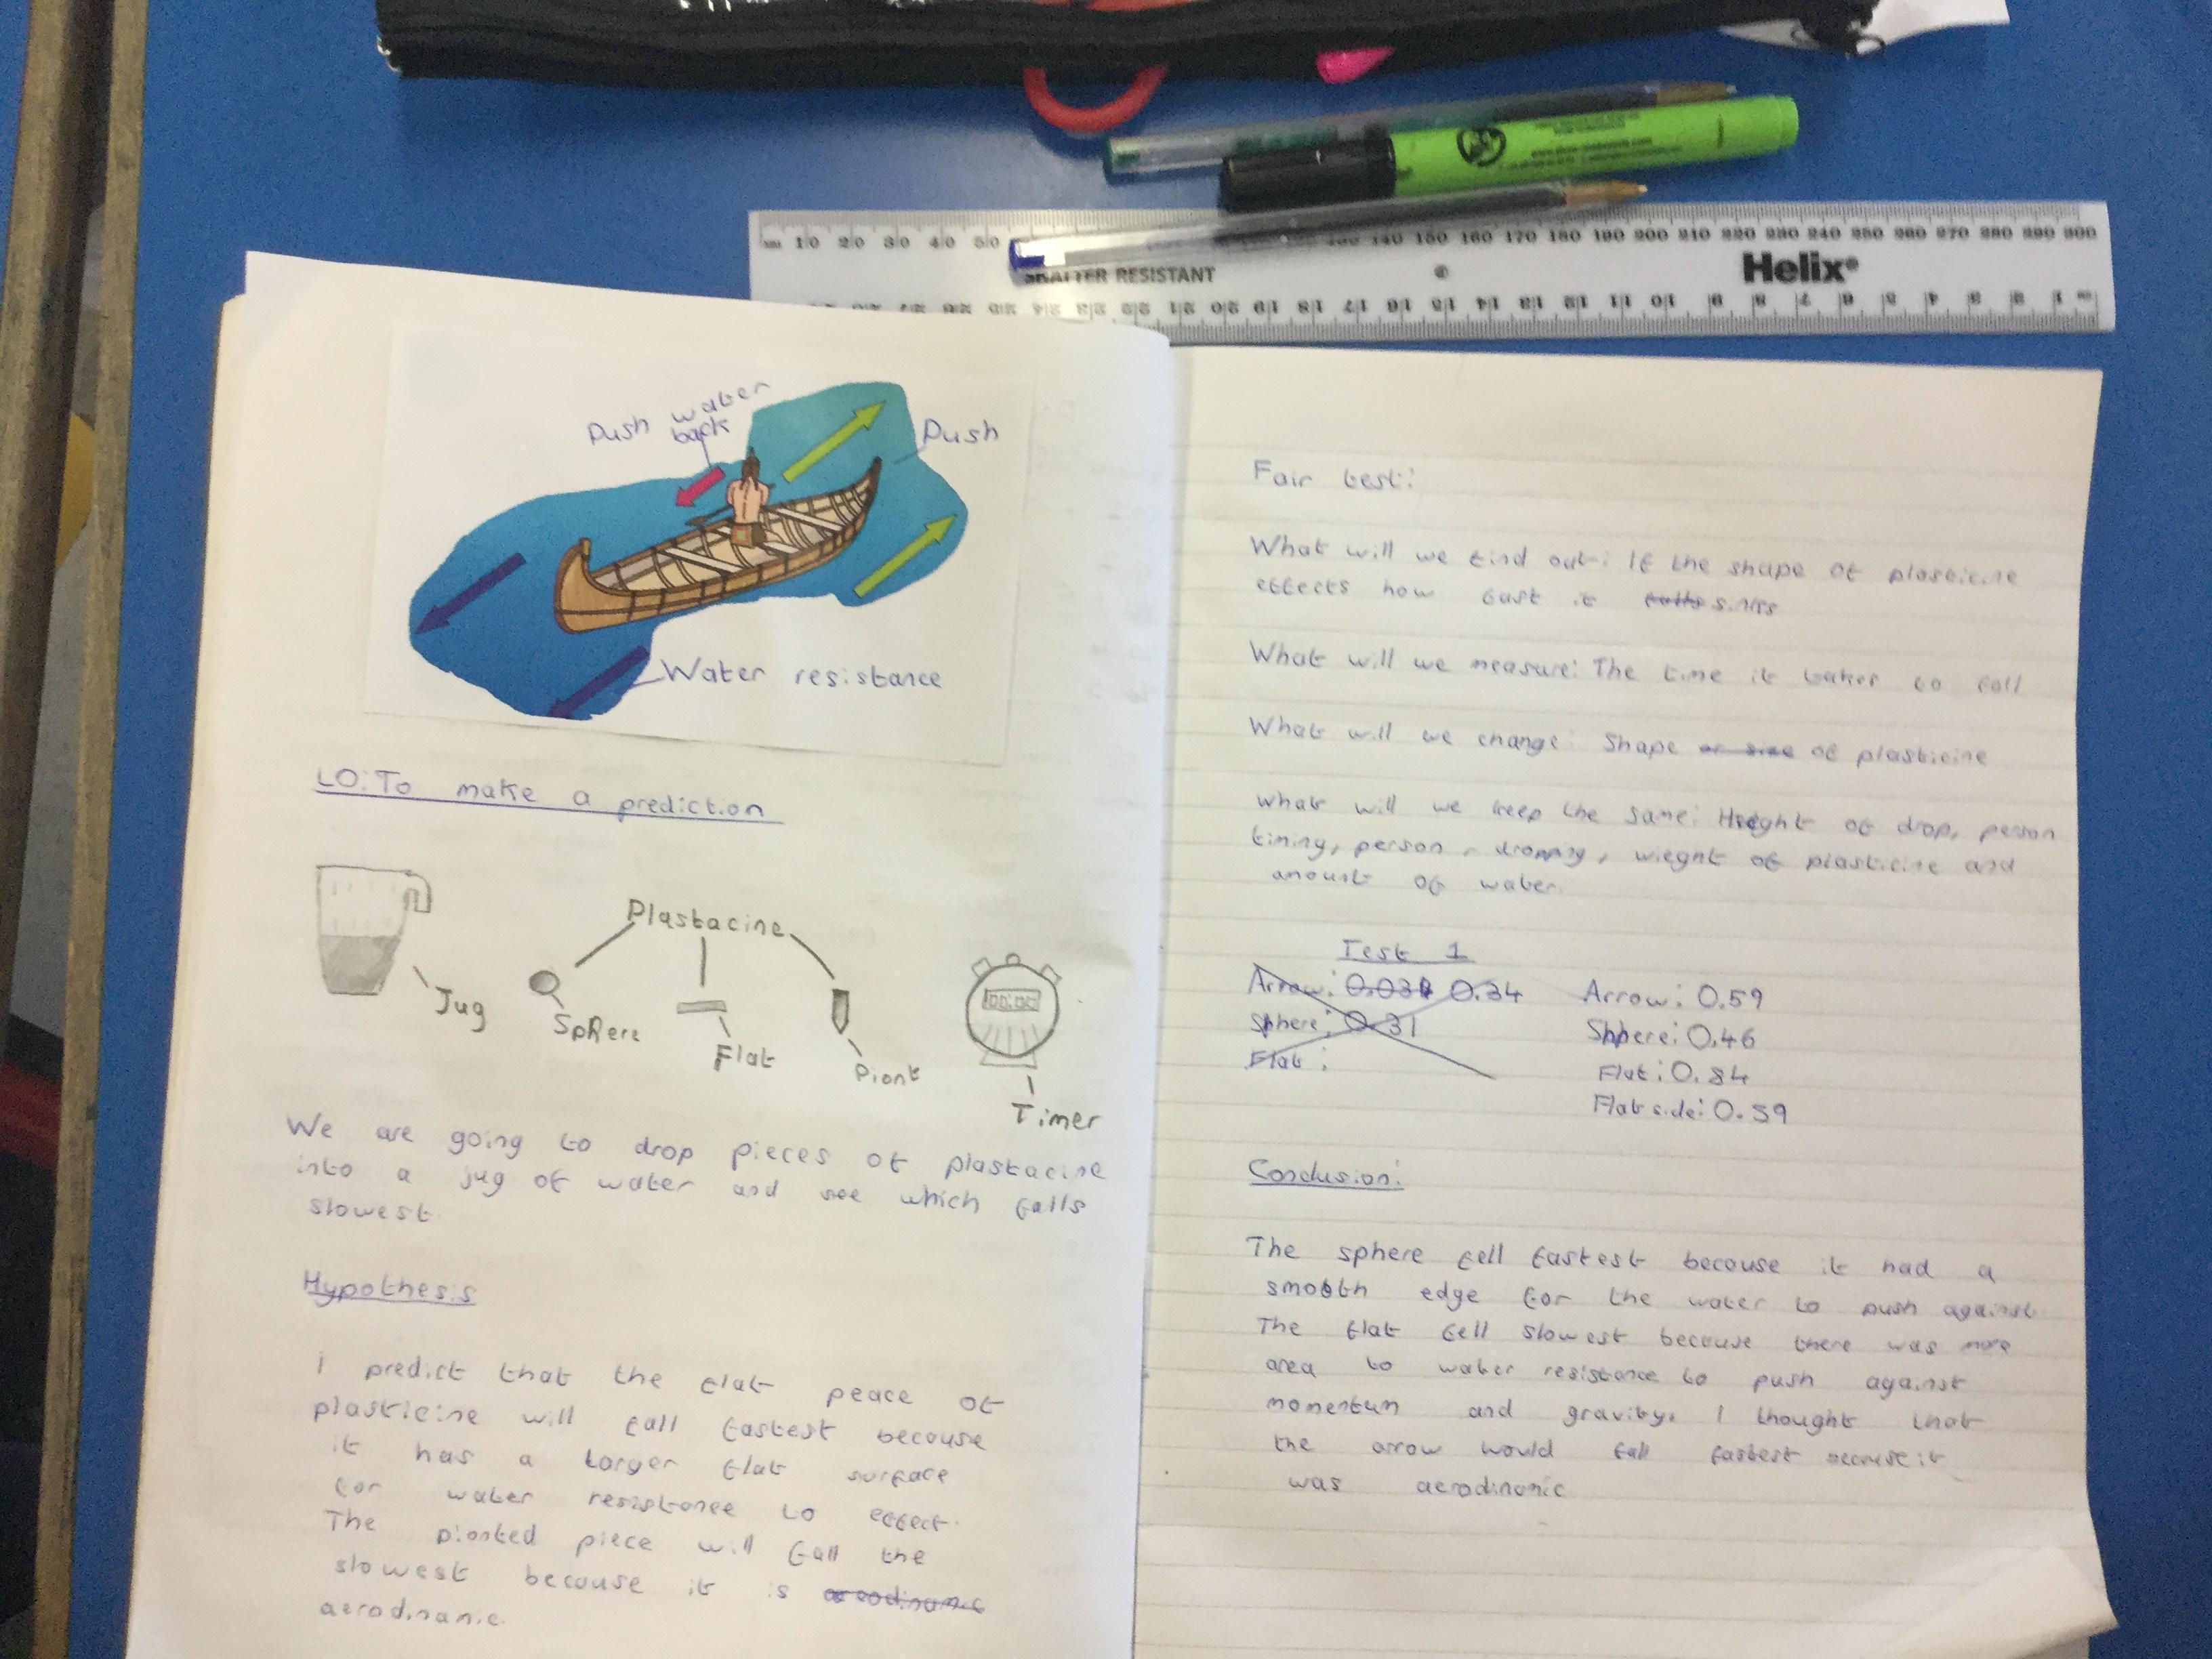 mm 10 20 30 40 50 130 140 150 160 170 180 190 200 210 220 230 240 250 260 270 280 290 300
SHATTER RESISTANT
Helix
24 23 22 21 20 19 18 17 16 15 14 13 12 11 10 9 8 7 6 5 4 3 2 1
Push water
back
Push
Water resistance
LO: To make a prediction
Plastacine
Jug
Sphere
Flat
Piont
00:00
Timer
We are going to drop pieces of plastacine
into a jug of water and see which falls
slowest.
Hypothesis
I predict that the flat peace of
plasticine will fall fastest because
it has a larger flat surface
for water resistance to effect.
The pionted piece will fall the
slowest because it is aerodinamic
aerodinamic
Fair test:
What will we find out: If the shape of plasticine
effects how fast it falls sinks
What will we measure: The time it takes to fall
What will we change: Shape or size of plasticine
What will we keep the same: Height of drop, person
timing, person dropping, wieght of plasticine and
amount of water.
Test 1
Arrow: 0.034 0.34
Sphere: 0.31
Flat:
Arrow: 0.59
Sphere: 0.46
Flat: 0.84
Flat side: 0.59
Conclusion:
The sphere fell fastest because it had a
smooth edge for the water to push against.
The flat fell slowest because there was more
area to water resistance to push against
momentum and gravity. I thought that
the arrow would fall fastest because it
was aerodinamic